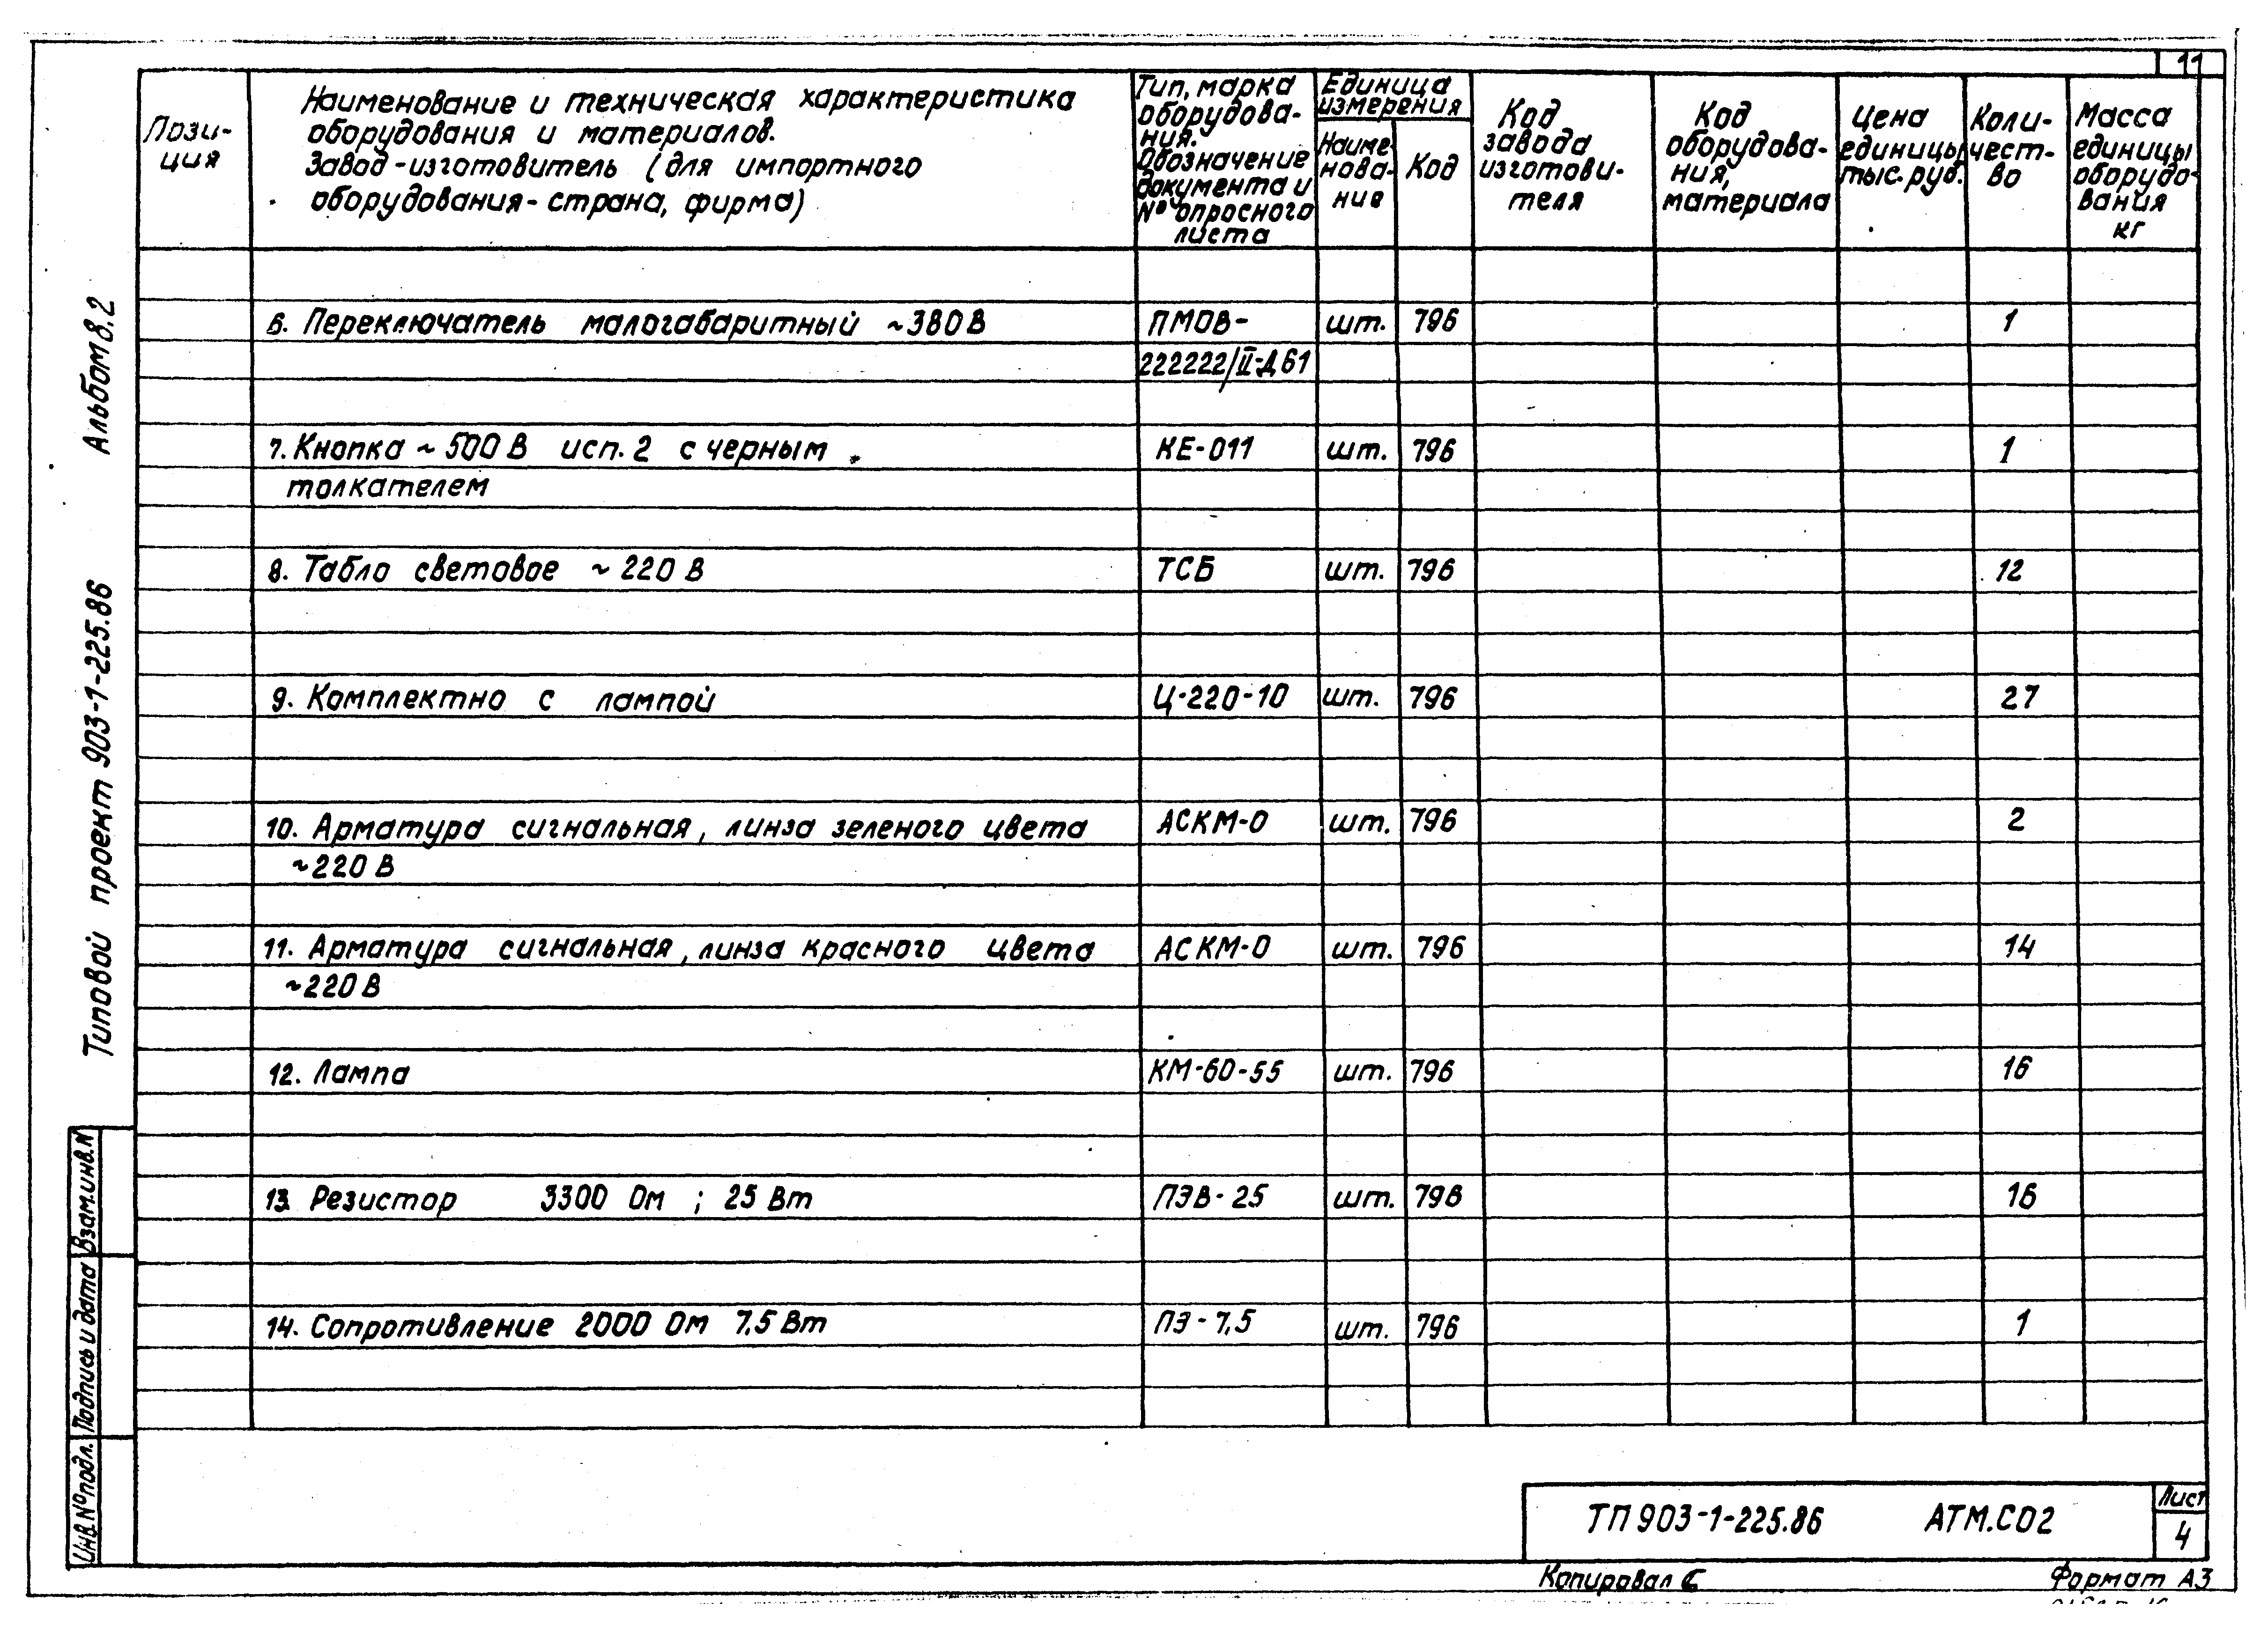 11
Пози-
ция
Наименование и техническая характеристика
оборудования и материалов.
Завод-изготовитель (для импортного
оборудования-страна, фирма)
Тип, марка
оборудова-
ния.
Обозначение
документа и
№ опросного
листа
Единица
измерения
Наиме-
нова-
ние
Код
Код
завода
изготови-
теля
Код
оборудова-
ния,
материала
Цена
единицы,
тыс. руб.
Коли-
чест-
во
Масса
единицы
оборудо-
вания
кг
6. Переключатель малогабаритный ~380 В ПМОВ- шт. 796 1
222222/II-Д61
7. Кнопка ~ 500 В исп. 2 с черным КЕ-011 шт. 796 1
толкателем
8. Табло световое ~ 220 В ТСБ шт. 796 12
9. Комплектно с лампой Ц-220-10 шт. 796 27
10. Арматура сигнальная, линза зеленого цвета АСКМ-О шт. 796 2
~220 В
11. Арматура сигнальная, линза красного цвета АСКМ-О шт. 796 14
~220 В
12. Лампа КМ-60-55 шт. 796 16
13. Резистор 3300 Ом ; 25 Вт ПЭВ-25 шт. 796 16
14. Сопротивление 2000 Ом 7,5 Вт ПЭ-7,5 шт. 796 1
Альбом 8.2
Типовой проект 903-1-225.86
Взам.инв.N
Подпись и дата
Инв.№ подл.
ТП 903-1-225.86 АТМ.СО2
Лист
4
Копировал
Формат А3